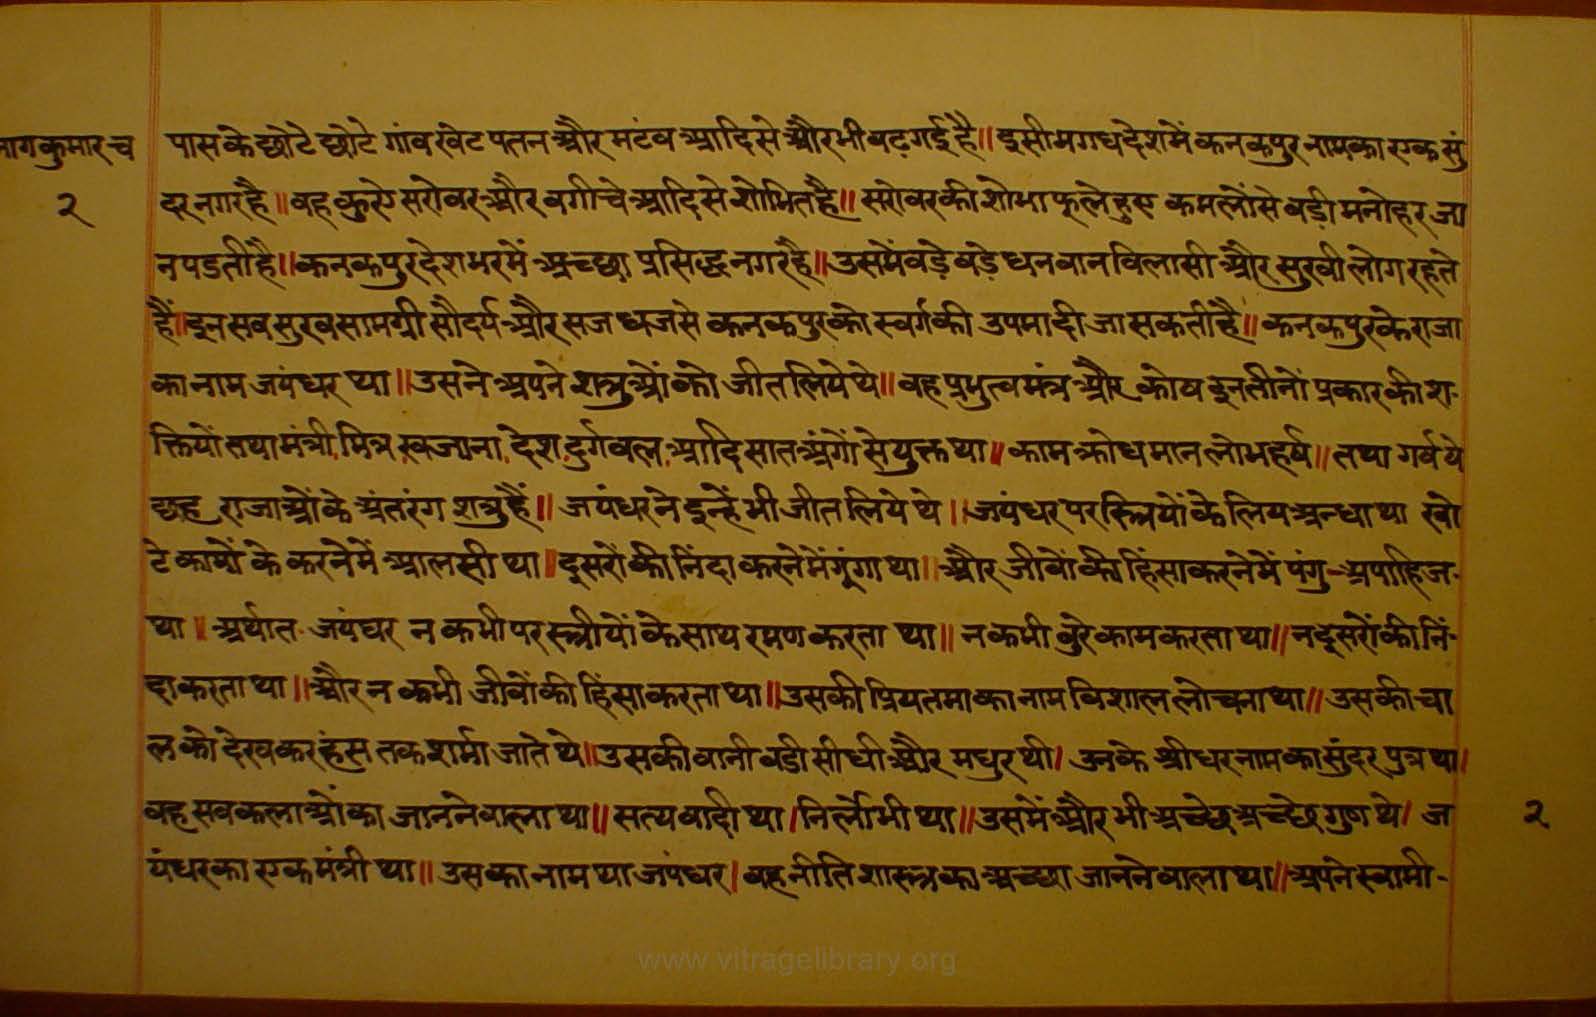 नागकुमार च
२
पास के छोटे छोटे गांव खेट पतन और मटंव आदि से और भी वढ़ गई है॥ इसी मगध देश में कनकपुर नामका एक सुं
दर नगर है॥ वह कुए सरोवर और वगीचे आदि से शोभित है॥ सरोवर की शोभा फूले हुए कमलों से वड़ी मनोहर जा
न पडती है॥ कनकपुर देश भर में अच्छा प्रसिद्ध नगर है॥ उसमें वड़े वड़े धनवान विलासी और सुखी लोग रहते
हैं॥ इन सव सुख सामग्री सौदर्य और सज धज से कनकपुर को स्वर्ग की उपमा दी जा सकतीं है॥ कनकपुर के राजा
का नाम जयंधर था॥ उसने अपने शत्रुओं को जीत लिये थे॥ वह प्रभुत्व मंत्र और कोष इन तीनों प्रकार की श-
क्तियों तथा मंत्री, मित्र, खजाना, देश, दुर्ग वल, आदि सात अंगों से युक्त था॥ काम क्रोध मान लोभ हर्ष॥ तथा गर्व ये
छह राजाओं के अंतरंग शत्रु हैं॥ जयंधर ने इन्हें भी जीत लिये थे॥ जयंधर पर स्त्रियों के लिय अन्धा था खो
टे कार्यो के करने में आलसी था॥ दूसरों की निंदा करने में गूंगा था॥ और जीवों की हिंसा करने में पंगु - अपाहिज-
था॥ अर्थात जयंधर न कभी पर स्त्रीयों के साथ रमण करता था॥ न कभी वुरे काम करता था॥ न दूसरों की निं-
दा करता था॥ और न कभी जीवों की हिंसा करता था॥ उसकी प्रियतमा का नाम विशाल लोचना था॥ उसकी चा
ल को देख कर हंस तक शर्मा जाते थे॥ उसकी वानी वडी सीधी और मधुर थी। उनके श्रीधर नाम का सुंदर पुत्र था।
वह सव कलाओं का जानने वाला था॥ सत्यवादी था। निर्लोभी था॥ उसमें और भी अच्छे अच्छे गुण थे। ज
यंधर का एक मंत्री था॥ उसका नाम था जयंधर। वह नीति शास्त्र का अच्छा जानने वाला था॥ अपने स्वामी-
२
www.vitragelibrary.org